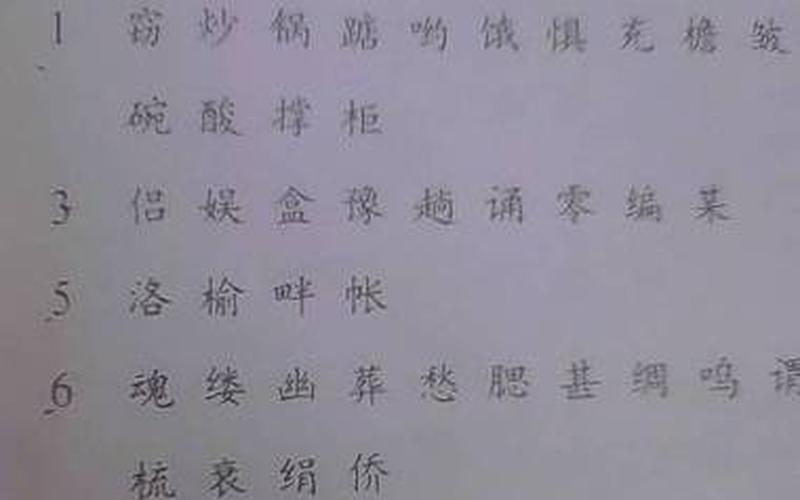 1 窃 炒 锅 踮 哟 饿 惧 充 檐 皱
碗 酸 撑 柜
3 侣 娱 盒 豫 趟 诵 零 编 某
5 洛 榆 畔 帐
6 魂 缕 幽 葬 愁 腮 甚 绸 呜 谓
梳 衰 绢 侨